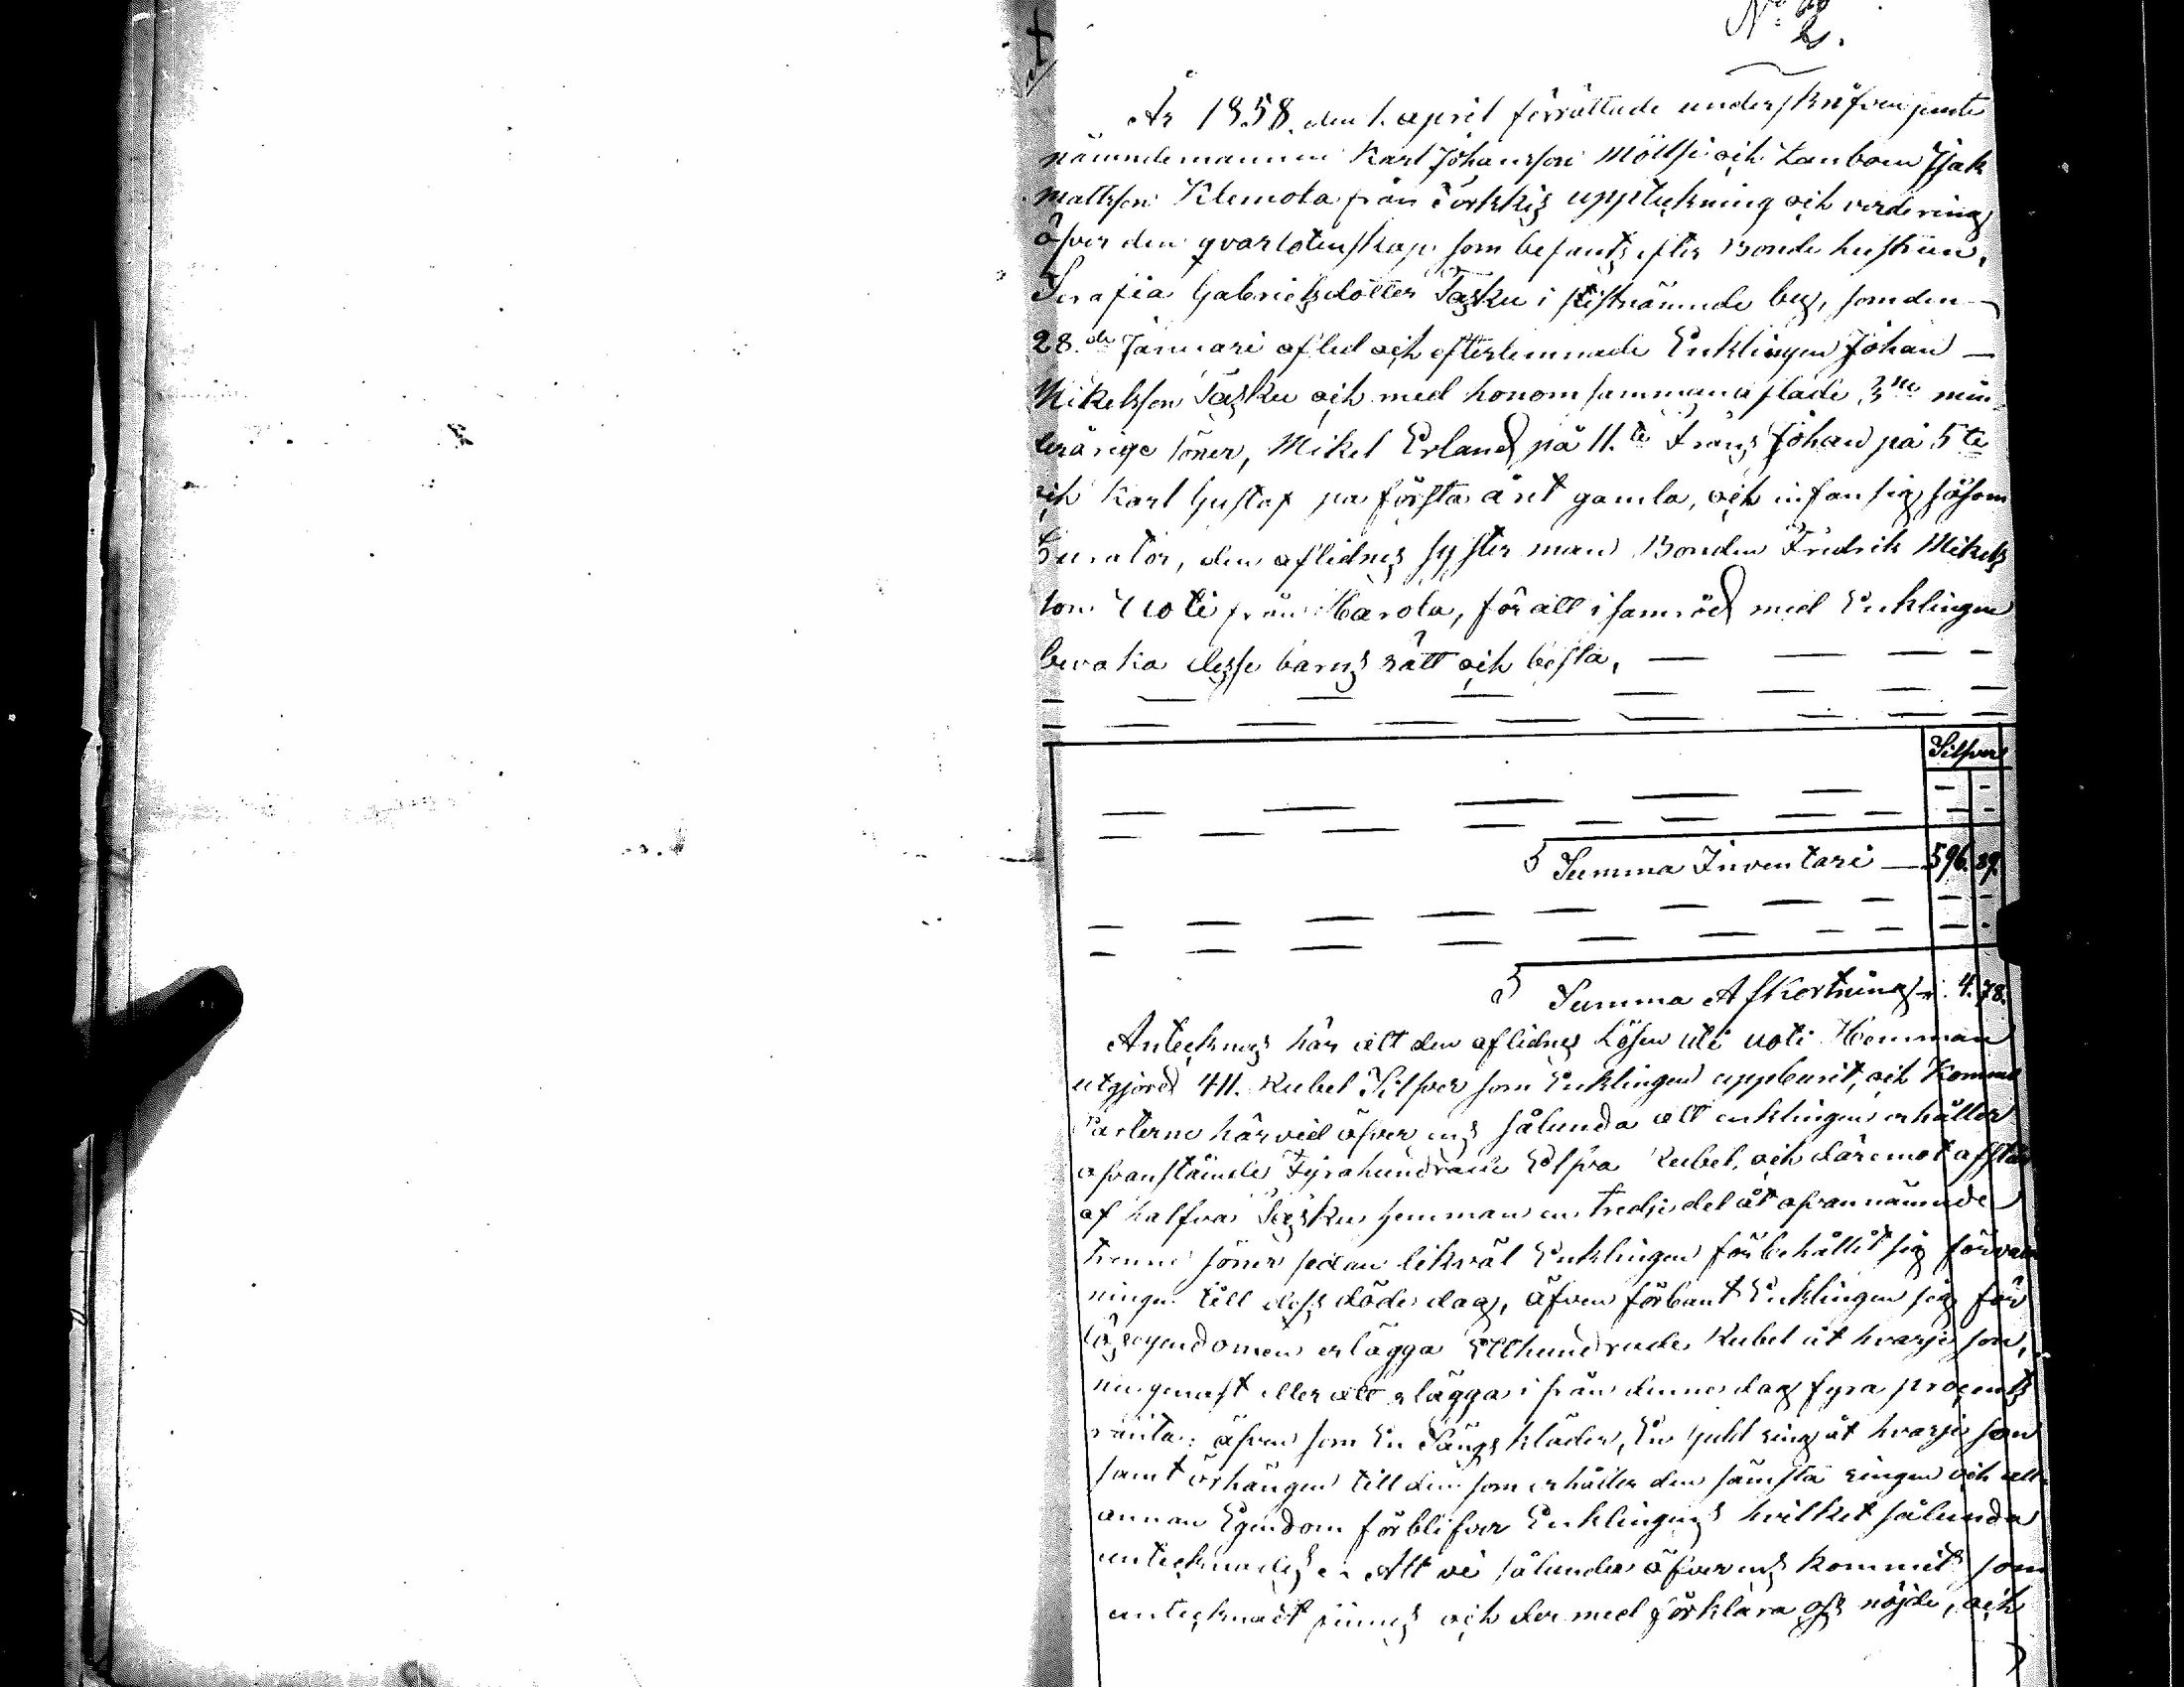 N:o
2.
År 1858. den 1. april förrättade underskrifven jemte
nämndemannen Karl Johansson Möttsi och Lanbonn Isak
Mattsson Klemola från Torkkis upptekning och verdering
öfver den qvarlotenskap som befants efter Bonde hustrun,
Serafia Gabrielsdotter Tasku i sistnämnde by, som den
28.de Januari afled och efterlemnade Enklingen Johan
Mikelsson Tasku och med honom sammanaflade 3ne min
derårige söner, Mikel Erland på 11.te Frans Johan på 5te
och Karl Gustaf på första året gamla, och infan sig såsom
Curator, den aflidnes syster man Bonden Fredrik Mikels
son Uoti från Harola, för att i samråd med Enklingen
bevaka desse barns rätt och bästa.
Silfver
Summa Inventari 596. 89.
Summa Afkortning 4. 78.
Antecknas här att den aflidnes Lösen uti Uoti Hemman
utgjord 411. Rubel Silfver som Enklingen uppburit, och Komma
Parterne härvid öfver ens sålunda att enklingen erhåller
ofvanstående Fyrahundrade Elfva Rubel, och däremot afstår
af halfva Tasku hemman en tredjedel åt ofvannämnde
trenne söner sedan likväl Enklingen förbehållit sig förvalt
ningen till dess döde dag, äfven förbant Enklingen sig för
lösegendomen erlägga Etthundrade Rubel åt hvarje son,
nu genast eller att erlägga i från denne dag fyra procents
ränta: äfven som En Sängskläder, En Guld ring åt hvarje son
samt örhängen till den som erhåller den sämsta ringen och all
annan Egendom förblifver Enklingens hvilket sålunda
antecknades Att vi sålunda öfver ens kommit som
antecknadt finnes och der med förklara oss nöjde, och